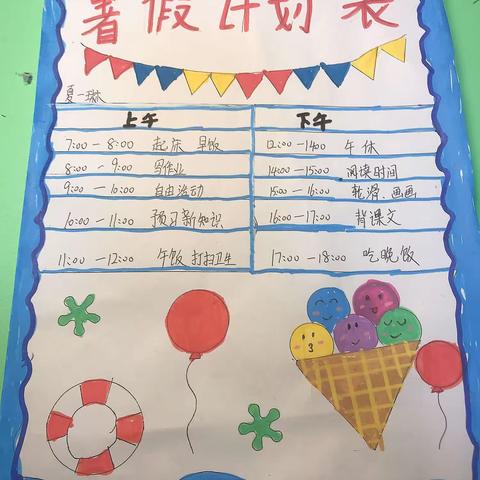 暑假计划表
夏一琳
上午 下午
7:00-8:00 起床 早饭 12:00-1400 午休
8:00-9:00 写作业 14:00-15:00 阅读时间
9:00-10:00 自由活动 15:00-16:00 轮滑、画画
10:00-11:00 预习新知识 16:00-17:00 背课文
11:00-12:00 午饭 打扫卫生 17:00-18:00 吃晚饭